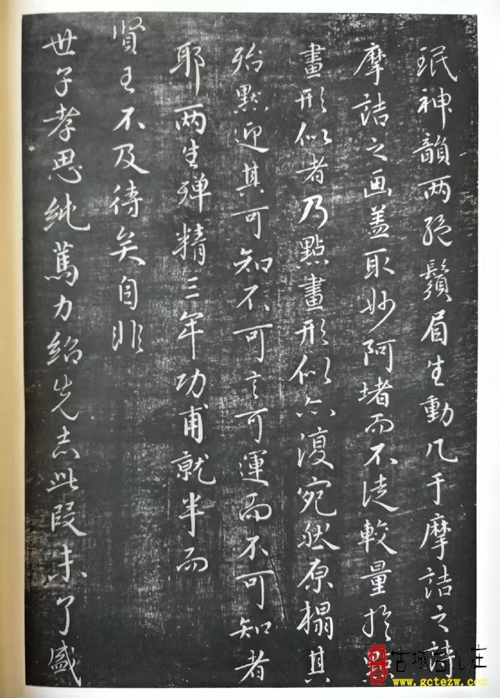 珉神韻两絕鬚眉生動几于摩詰之詩
摩詰之画盖取妙阿堵而不徒較量於點
畫形似者乃點畫形似亦復宛然原榻其
殆默迎其可知不可言可運而不可知者
耶两生殫精三年功甫就半而
賢王不及待矣自非
世子孝思純篤力紹先志此段未了盛
www.gctezw.com